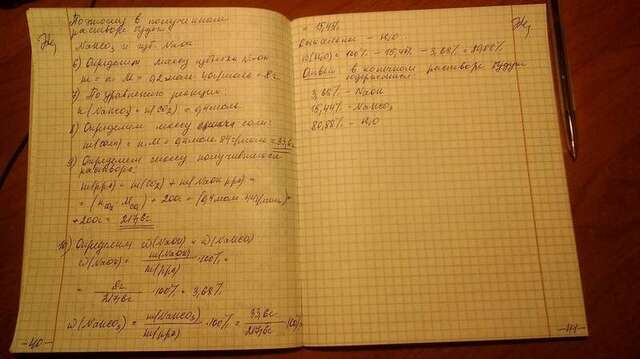 Поэтому в полученном
растворе будет
NaHCO₃ и изб. NaOH
6) Определим массу избытка NaOH
m = n·M = 0,2моль·40г/моль = 8г
7) По уравнению реакции:
n(NaHCO₃) = n(CO₂) = 0,4моль
8) Определим массу соли:
m(соли) = n·M = 0,4моль·84г/моль = 33,6г
9) Определим массу получившегося
раствора:
m(р-ра) = m(CO₂) + m(NaOH р-ра) =
= (n CO₂ · M CO₂) + 200г = (0,4моль·44г/моль)+
+200г = 217,6г
10) Определим ω(NaOH) и ω(NaHCO₃)
ω(NaOH) = m(NaOH)/m(р-ра) ·100% =
= 8г/217,6г ·100% = 3,68%
ω(NaHCO₃) = m(NaHCO₃)/m(р-ра) ·100% = 33,6г/217,6г ·100% =
-40-
= 15,44%
Остальное - H₂O
ω(H₂O) = 100% - 15,44% - 3,68% = 80,88%
Ответ: в конечном растворе будут
содержаться:
3,68% - NaOH
15,44% - NaHCO₃
80,88% - H₂O
-41-